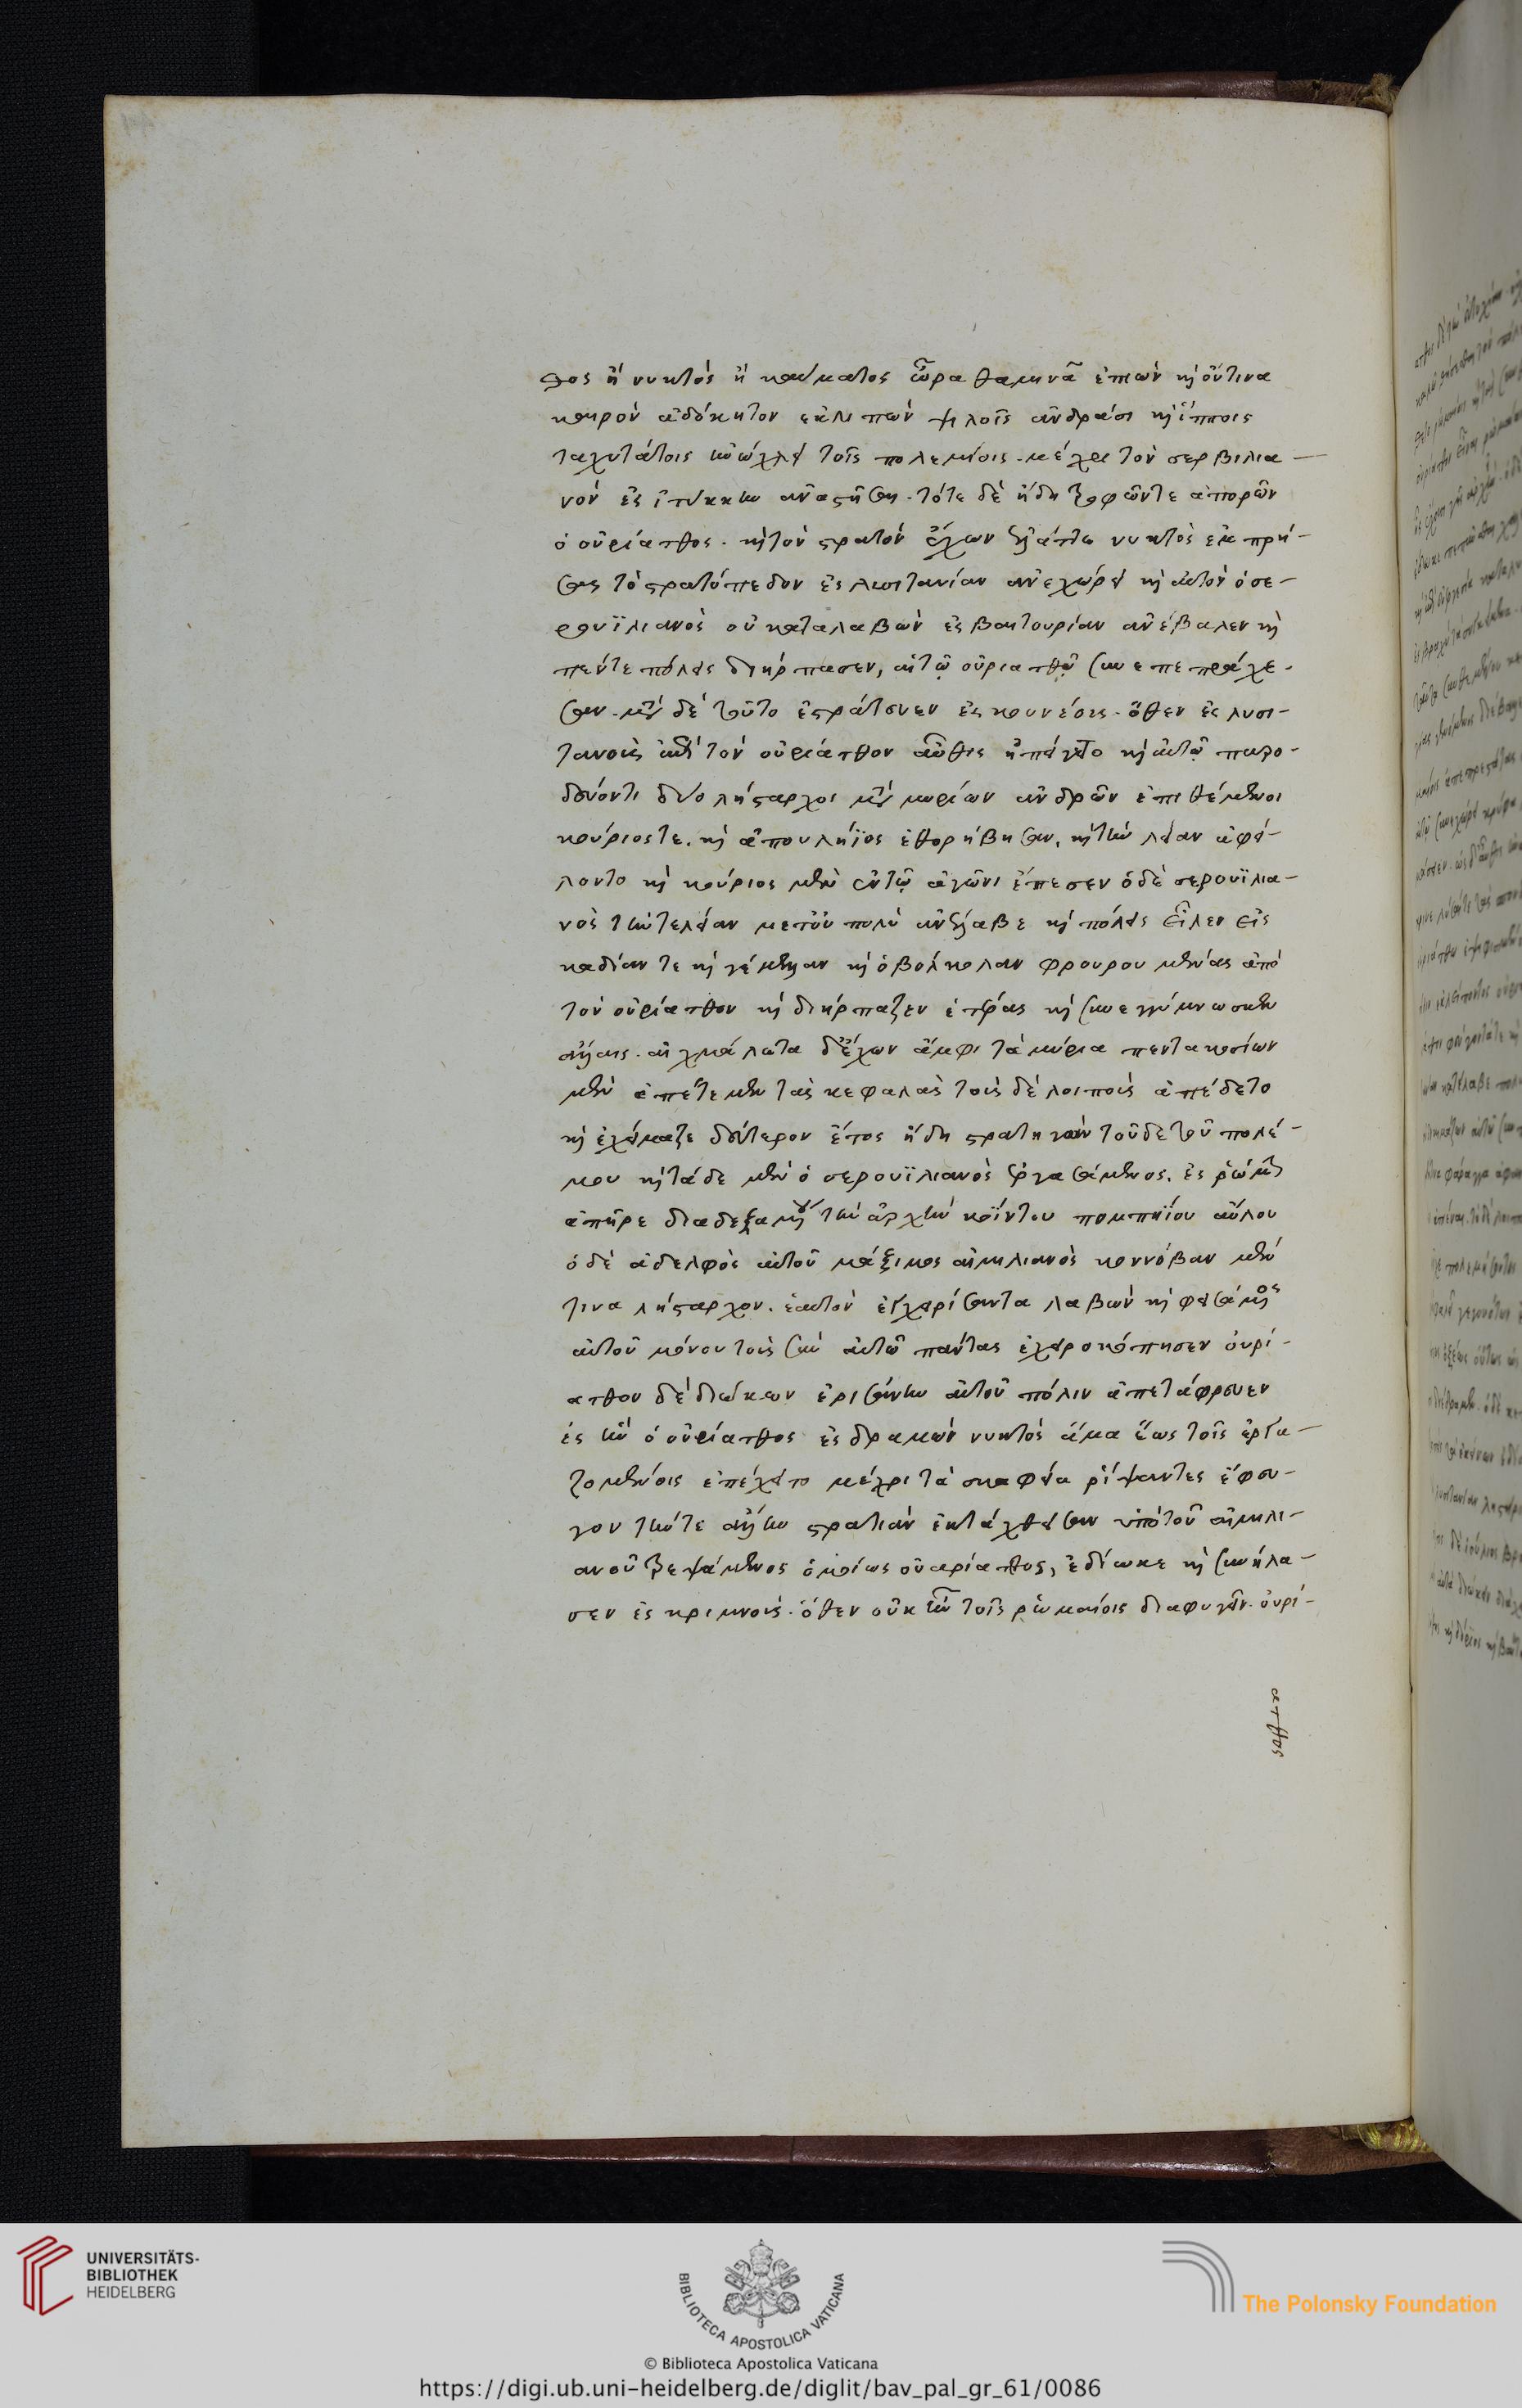 θος ἢ νυκτὸς ἢ καύματος ὥρα θαμινᾶ ἐπιὼν κὴ οὔτινα
καιρὸν ἀδόκητον ἐκλιπὼν ψιλοῖς ἀνδράσι κὴ ἵπποις
ταχυτάτοις ἠνώχλει τοῖς πολεμίοις. μέχρι τὸν σερβιλια-
νὸν ἐς ἰτύκκην ἀναστῆσαι. τότε δὲ ἤδη τροφῶν τε ἀπορῶν
ὁ οὐρίατθος. κὴ τὸν στρατὸν ἔχων ἐλάττω νυκτὸς ἐμπρή-
σας τὸ στρατόπεδον ἐς λυσιτανίαν ἀνεχώρει κὴ αὐτὸν ὁ σε-
ρουϊλιανὸς οὐ καταλαβὼν ἐς βαιτουρίαν ἀνέβαλεν κὴ
πέντε πόλεις διήρπασεν, αἱ τῷ οὐριατθῷ συνεπεπράχε-
σαν. μετὰ δὲ τοῦτο ἐστράτευεν ἐς κουνέοις. ὅθεν ἐς λυσι-
τανοὺς ἐπὶ τὸν οὐρίατθον αὖθις ἠπείγετο κὴ αὐτῷ παρο-
δεύοντι δύο λήσταρχοι μετὰ μυρίων ἀνδρῶν ἐπιθέμενοι
κούριος τε. κὴ ἀπουλήϊος ἐθορήβησαν, κὴ τὴν λείαν ἀφεί-
λοντο κὴ κούριος μὲν ἐν τῷ ἀγῶνι ἔπεσεν ὁ δὲ σερουϊλια-
νὸς τήν τε λείαν μετ οὐ πολὺ ἀνέλαβε κὴ πόλεις εἷλεν εἰσ
καδίαν τε κὴ γέμελλαν κὴ ὀβολκολαν φρουρουμένας ἀπὸ
τὸν οὐρίατθον κὴ διήρπαζεν ἑτέρας κὴ συνεγίνωσκεν
ἄλλαις. αἰχμάλωτα δ' ἔχων ἀμφὶ τὰ μύρια πεντακοσίων
μὲν ἀπέτεμεν τὰς κεφαλὰς τοὺς δὲ λοιποὺς ἀπέδετο
κὴ ἐχείμαζε δεύτερον ἔτος ἤδη στρατηγῶν τοῦδε τοῦ πολέ-
μου κὴ τάδε μὲν ὁ σερουϊλιανὸς ἐργασάμενος. ἐς ῥώμην
ἀπῆρε διαδεξαμένου τὴν ἀρχὴν κοΐντου πομπηίου αὔλου
ὁ δὲ ἀδελφὸς αὐτοῦ μάξιμος αἰμιλιανὸς κοννόβαν μέν
τινα λήσταρχον. ἑαυτὸν ἐγχειρίσαντα λαβὼν κὴ φεισάμενος
αὐτοῦ μόνου τοὺς σὺν αὐτῷ πάντας ἐχειροκόπησεν οὐρί-
ατθον δὲ διώκων ἐρισάνην αὐτοῦ πόλιν ἀπετάφρευεν
ἐς ἣν ὁ οὐρίατθος ἐσδραμὼν νυκτὸς ἅμα ἕως τοῖς ἐργα-
ζομένοις ἐπέχειτο μέχρι τὰ σκαφεῖα ῥίψαντες ἔφευ-
γον τήν τε ἄλλην στρατιὰν ἐκτάχθεισαν ὑπὸ τοῦ αἰμιλι-
ανοῦ τρεψάμενος ὁμοίως οὐαρίατθος, ἐδίωκε κὴ συνήλα-
σεν ἐς κρημνούς. ὅθεν οὐκ ἦν τοῖς ῥωμαίοις διαφυγεῖν. οὐρί-
ατθος
UNIVERSITÄTS-
BIBLIOTHEK
HEIDELBERG
BIBLIOTECA APOSTOLICA VATICANA
The Polonsky Foundation
© Biblioteca Apostolica Vaticana
https://digi.ub.uni-heidelberg.de/diglit/bav_pal_gr_61/0086